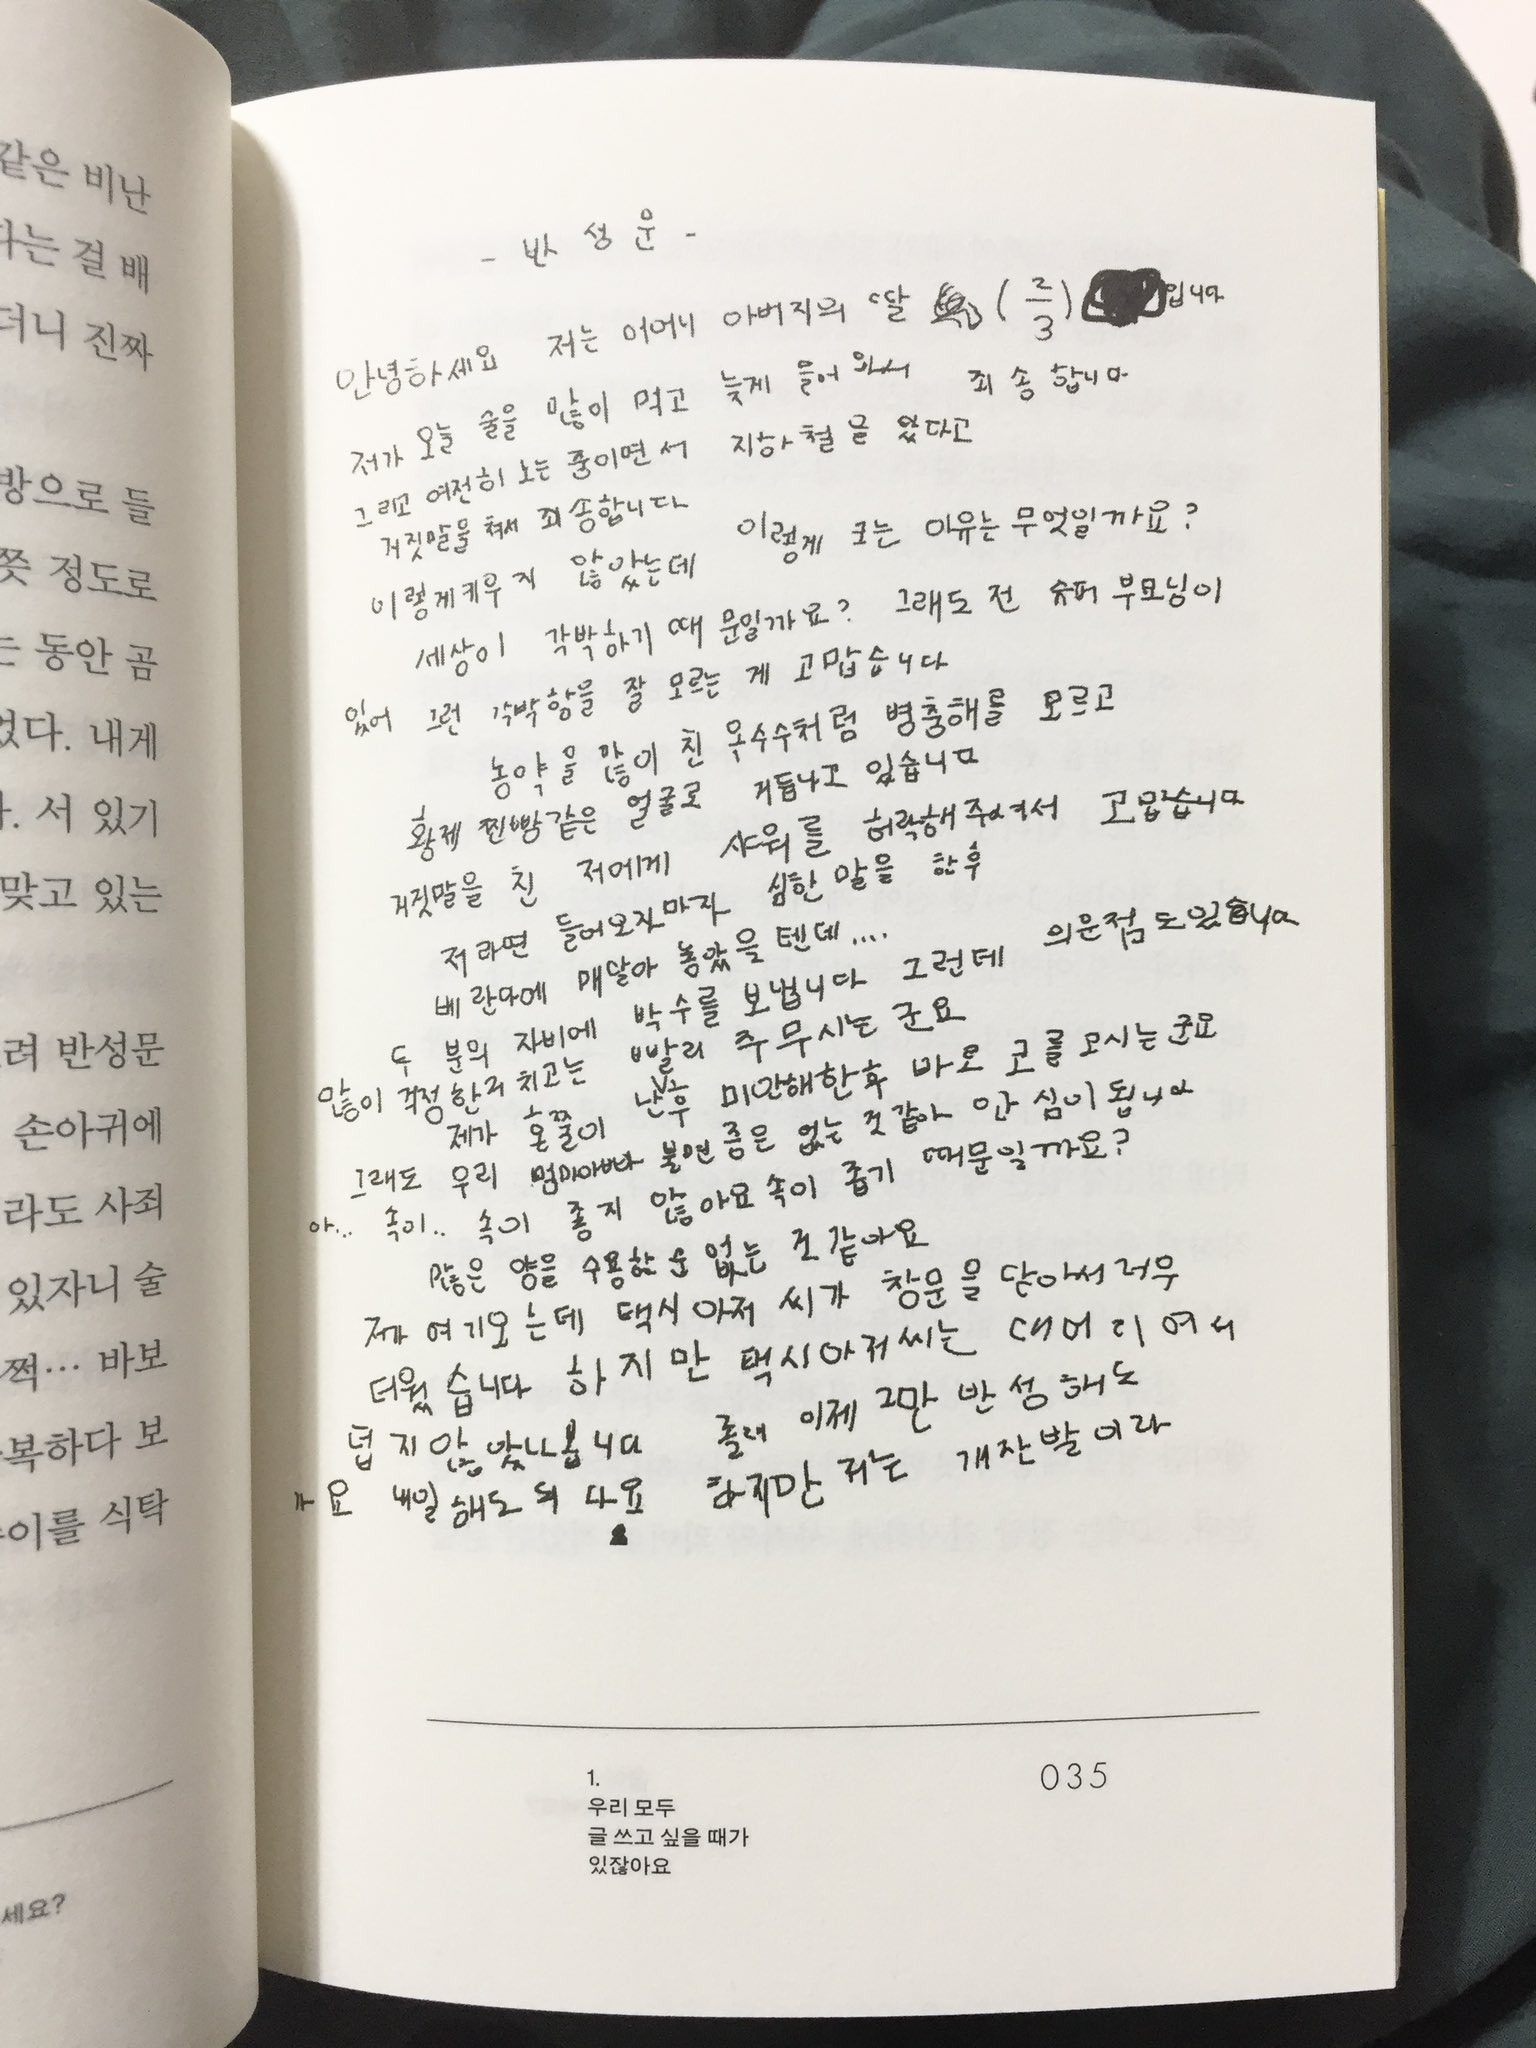 같은 비난
다는 걸 배
더니 진짜
방으로 들
쯧 정도로
는 동안 곰
었다. 내게
다. 서 있기
맞고 있는
려 반성문
손아귀에
라도 사죄
있자니 술
쩍… 바보
복하다 보
이를 식탁
세요?
- 반성문 -
안녕하세요 저는 어머니 아버지의 딸 (2/3) 입니다
저가 오늘 술을 많이 먹고 늦게 들어와서 죄송합니다
그리고 여전히 노는 중이면서 지하철을 았다고
거짓말을 쳐서 죄송합니다
이렇게 키우지 않았는데 이렇게 크는 이유는 무엇일까요?
세상이 각박하기 때문일까요? 그래도 전 슈퍼 부모님이
있어 그런 각박함을 잘 모르는 게 고맙습니다
농약을 많이 친 옥수수처럼 병충해를 모르고
황제 찐빵같은 얼굴로 거듭나고 있습니다
거짓말을 친 저에게 샤워를 허락해주셔서 고맙습니다
저라면 들어오자마자 심한 말을 한후
베란다에 매달아 놓았을텐데....
두 분의 자비에 박수를 보냅니다 그런데 의문점도있습니다
많이 걱정한거 치고는 빨리 주무시는군요
제가 혼쭐이 난후 미안해한후 바로 코를 고시는군요
그래도 우리 엄마아빠 불면증은 없는 것같아 안심이 됩니다
아... 속이.. 속이 좋지 않아요 속이 좁기 때문일까요?
많은 양을 수용할 순 없는 것 같아요
제가 여기오는데 택시아저씨가 창문을 닫아서 너무
더웠습니다 하지만 택시아저씨는 대머리여서
덥지않았나봅니다 몰래 이제 그만 반성해도
가요 내일해도 되나요 하지만 저는 개잔발이라
1.
우리 모두
글 쓰고 싶을 때가
있잖아요
035